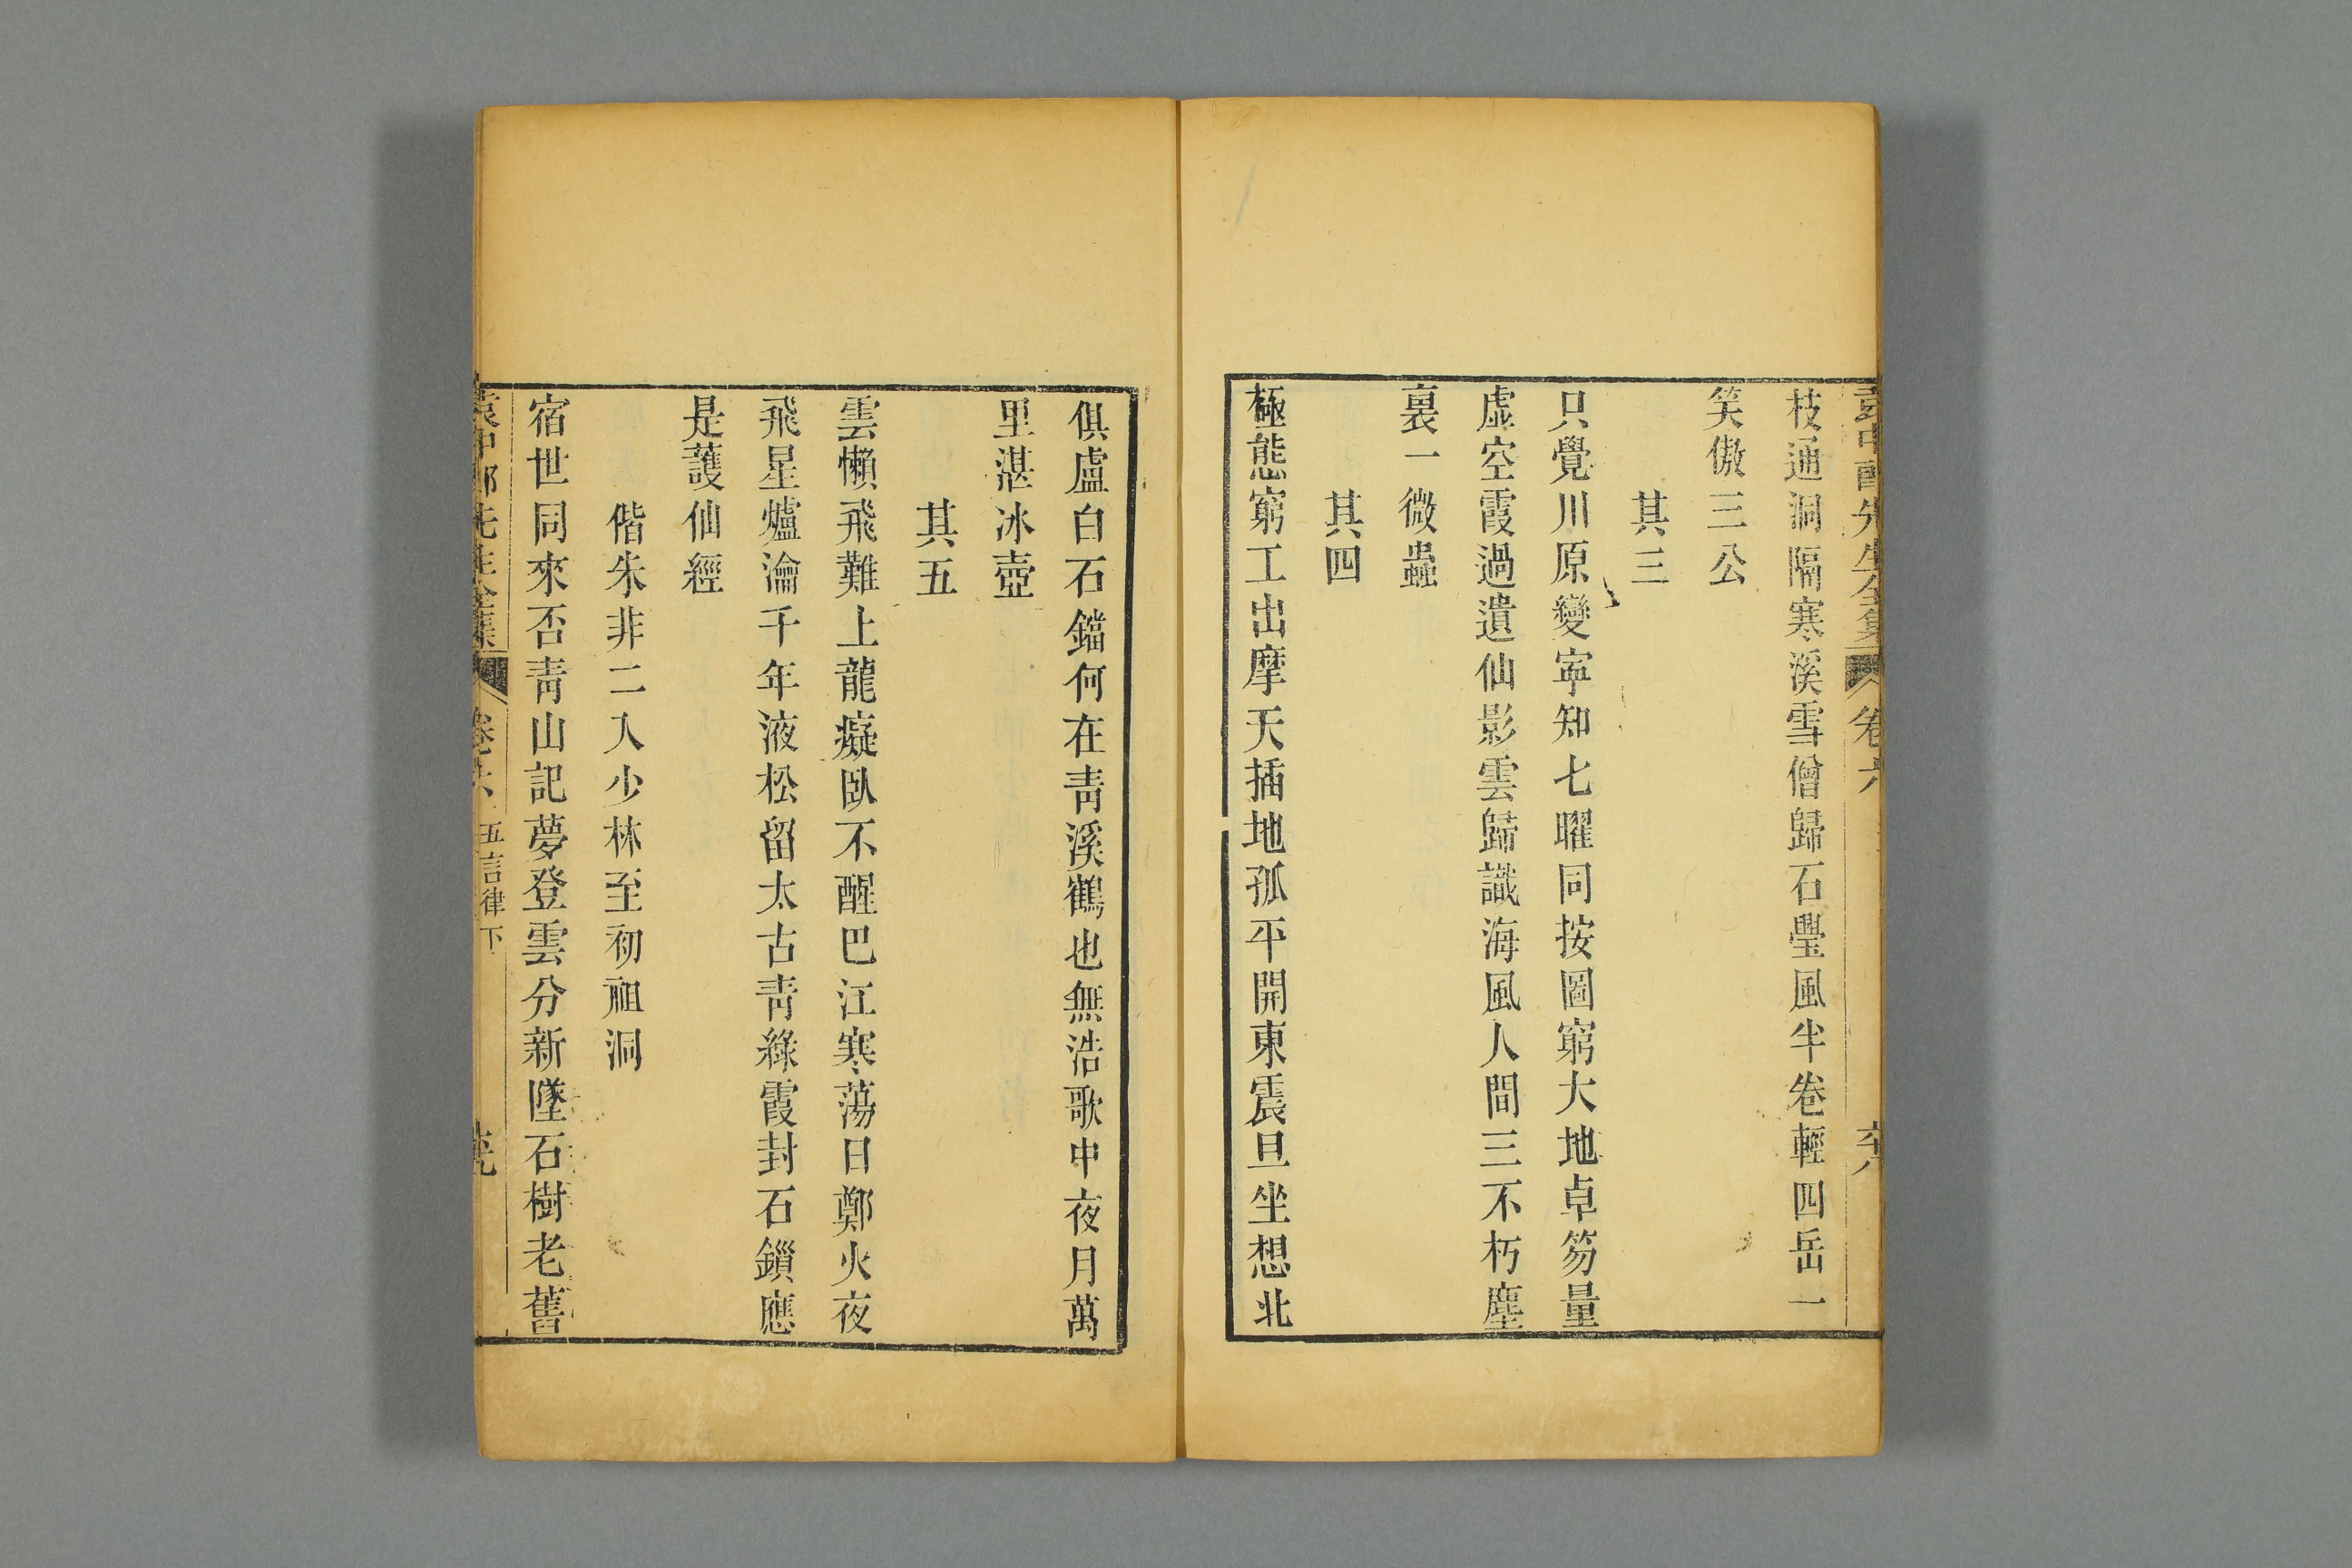 袁中郎先生全集 卷六
枝通洞隔寒溪雪僧歸石壘風半卷輕四岳一
笑傲三公
其三
只覺川原變寧知七曜同按圖窮大地卓笏量
虛空霞過遺仙影雲歸識海風人間三不朽塵
裏一微蟲
其四
極態窮工出摩天插地孤平開東震旦坐想北
俱盧白石鐺何在青溪鶴也無浩歌中夜月萬
里湛冰壺
其五
雲懶飛難上龍癡臥不醒巴江寒蕩日鄭火夜
飛星爐瀹千年液松留太古青綠霞封石鎖應
是護仙經
偕朱非二入少林至初祖洞
宿世同來否青山記夢登雲分新墜石樹老舊
袁中郎先生全集 卷六 五言律下